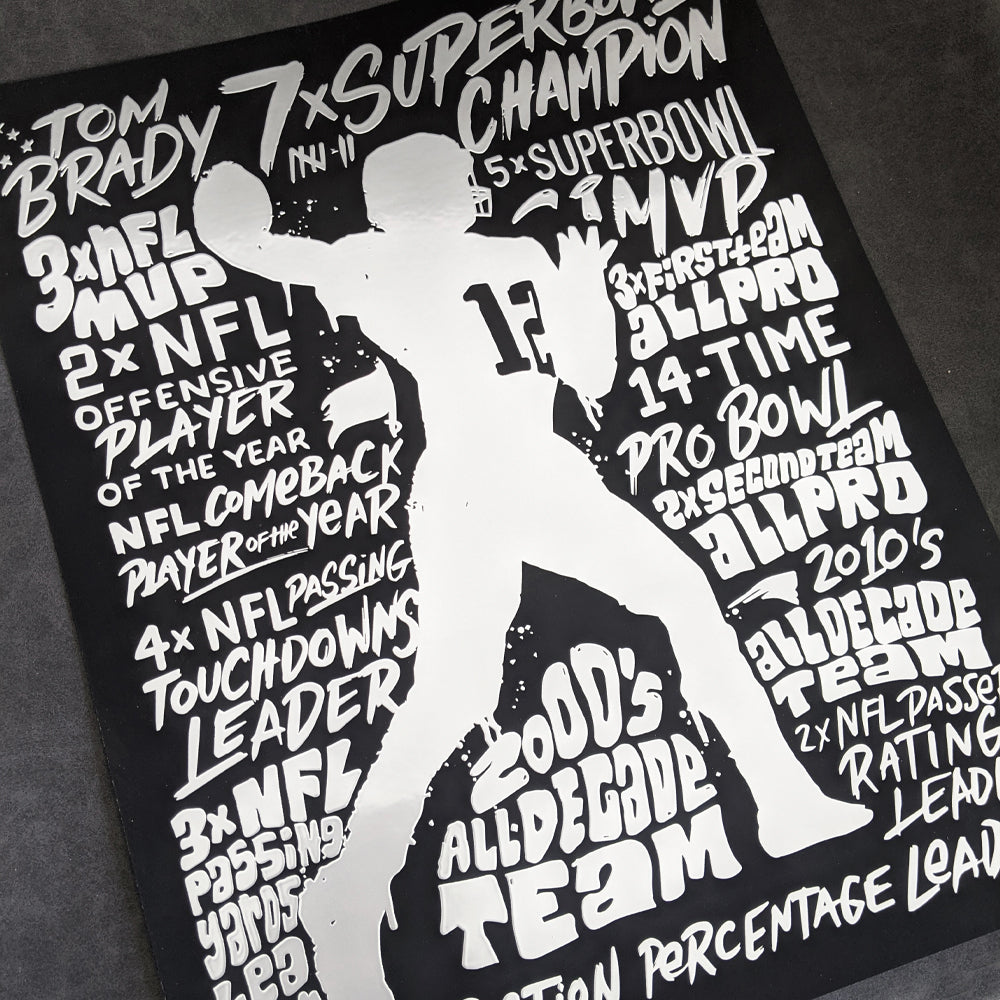 TOM
BRADY
7xSUPERBOWL
CHAMPiON
5xSUPERBOWL
MVP
3xNFL
MVP
2x NFL
OFFENSIVE
PLAYER
OF THE YEAR
NFL COMeBACK
PLAYER OF the YeAR
4x NFL PASSiNG
TOUCHDOWNS
LEADER
3xNFL
Passing
yards
Lea
12
3xFiRST team
aLLPRO
14-TIME
PRO BOWL
2xSECOND TEAM
aLLPRO
2010's
aLLDECaDe
Team
2x NFL PASSe
RATING
LEAD
2000's
ALL·DECaDe
TEam
PeRCENTAGE LeAD